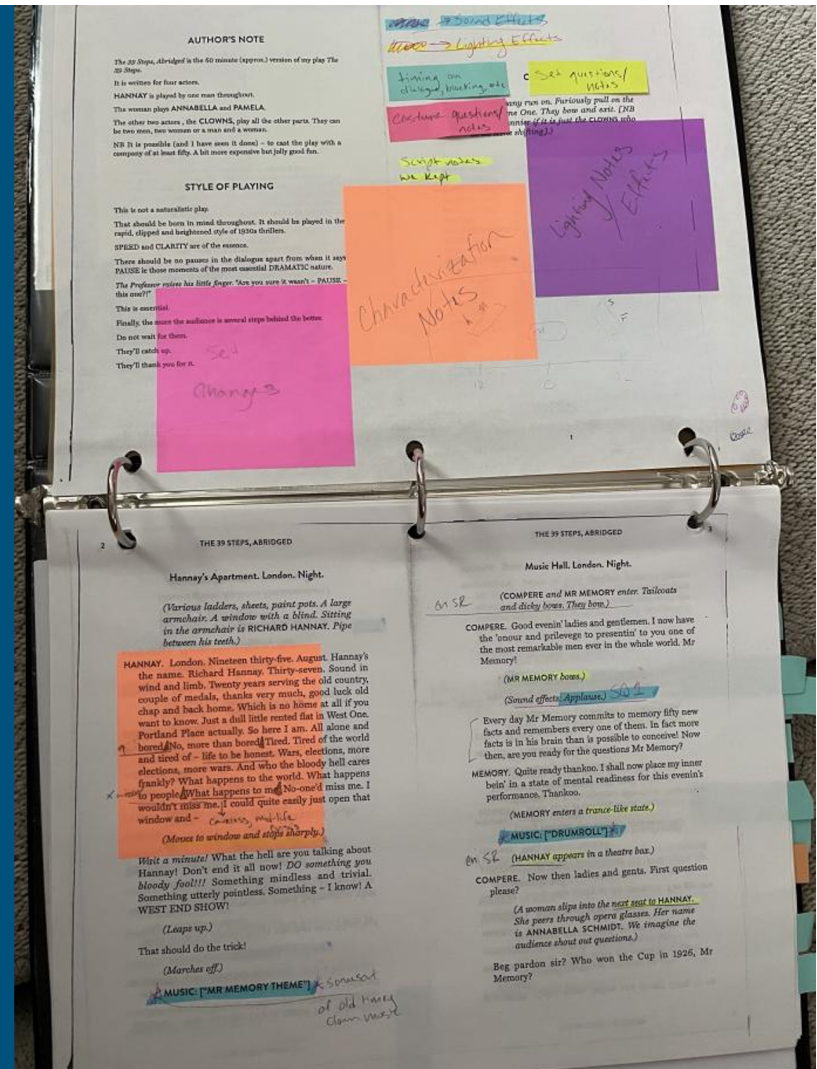 AUTHOR'S NOTE
The 39 Steps, Abridged is the 60 minute (approx.) version of my play The
39 Steps.
It is written for four actors.
HANNAY is played by one man throughout.
The woman plays ANNABELLA and PAMELA.
The other two actors, the CLOWNS, play all the other parts. They can
be two men, two women or a man and a woman.
NB It is possible (and I have seen it done) – to cast the play with a
company of at least fifty. A bit more expensive but jolly good fun.
STYLE OF PLAYING
This is not a naturalistic play.
That should be born in mind throughout. It should be played in the
rapid, clipped and heightened style of 1930s thrillers.
SPEED and CLARITY are of the essence.
There should be no pauses in the dialogue apart from when it says
PAUSE ie those moments of the most essential DRAMATIC nature.
The Professor raises his little finger. "Are you sure it wasn't – PAUSE –
this one?!"
This is essential.
Finally, the more the audience is several steps behind the better.
Do not wait for them.
They'll catch up.
They'll thank you for it.
Set
Changes
→ Sound Effects
→ Lighting Effects
timing on
dialogue, blocking, etc
Set questions/
notes
Costume questions/
notes
any run on. Furiously pull on the
One. They bow and exit. [NB
if it is just the CLOWNS who
shifting.]
Script notes
we kept
Characterization
Notes
Lighting Notes
/ Effects
1
2
THE 39 STEPS, ABRIDGED
Hannay's Apartment. London. Night.
(Various ladders, sheets, paint pots. A large
armchair. A window with a blind. Sitting
in the armchair is RICHARD HANNAY. Pipe
between his teeth.)
HANNAY. London. Nineteen thirty-five. August. Hannay's
the name. Richard Hannay. Thirty-seven. Sound in
wind and limb. Twenty years serving the old country,
couple of medals, thanks very much, good luck old
chap and back home. Which is no home at all if you
want to know. Just a dull little rented flat in West One.
Portland Place actually. So here I am. All alone and
bored. No, more than bored. Tired. Tired of the world
and tired of – life to be honest. Wars, elections, more
elections, more wars. And who the bloody hell cares
frankly? What happens to the world. What happens
to people. What happens to me. No-one'd miss me. I
wouldn't miss me. I could quite easily just open that
window and –
(Moves to window and stops sharply.)
Wait a minute! What the hell are you talking about
Hannay! Don't end it all now! DO something you
bloody fool!!! Something mindless and trivial.
Something utterly pointless. Something – I know! A
WEST END SHOW!
(Leaps up.)
That should do the trick!
(Marches off.)
MUSIC: ["MR MEMORY THEME"]
of old timey
clown music
THE 39 STEPS, ABRIDGED
3
Music Hall. London. Night.
on SR
(COMPERE and MR MEMORY enter. Tailcoats
and dicky bows. They bow.)
COMPERE. Good evenin' ladies and gentlemen. I now have
the 'onour and prilevege to presentin' to you one of
the most remarkable men ever in the whole world. Mr
Memory!
(MR MEMORY bows.)
(Sound effects: Applause.) SQ 1
Every day Mr Memory commits to memory fifty new
facts and remembers every one of them. In fact more
facts is in his brain than is possible to conceive! Now
then, are you ready for the questions Mr Memory?
MEMORY. Quite ready thankoo. I shall now place my inner
bein' in a state of mental readiness for this evenin's
performance. Thankoo.
(MEMORY enters a trance-like state.)
MUSIC: ["DRUMROLL"]
on SR
(HANNAY appears in a theatre box.)
COMPERE. Now then ladies and gents. First question
please?
(A woman slips into the next seat to HANNAY.
She peers through opera glasses. Her name
is ANNABELLA SCHMIDT. We imagine the
audience shout out questions.)
Beg pardon sir? Who won the Cup in 1926, Mr
Memory?